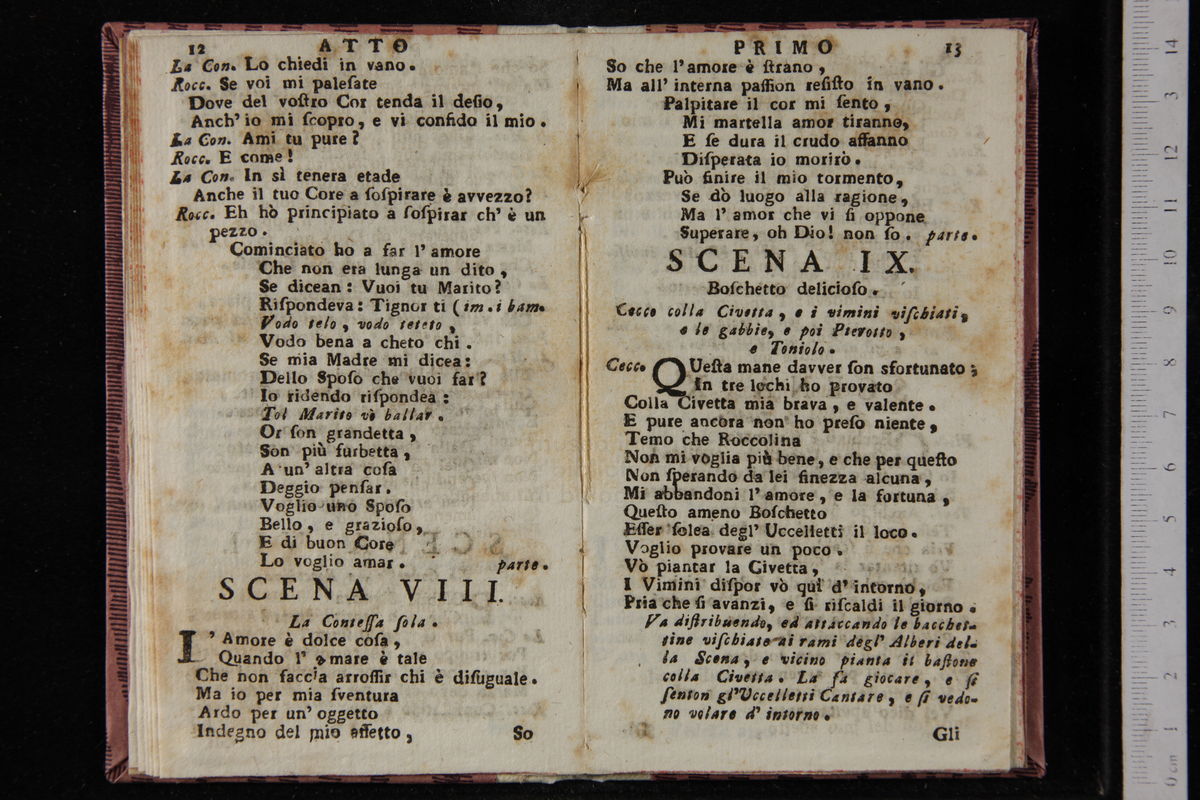 12 ATTO
La Con. Lo chiedi in vano.
Rocc. Se voi mi paleſate
Dove del voſtro Cor tenda il deſio,
Anch' io mi ſcopro, e vi confido il mio.
La Con. Ami tu pure?
Rocc. E come!
La Con. In sì tenera etade
Anche il tuo Core a ſoſpirare è avvezzo?
Rocc. Eh hò principiato a ſoſpirar ch' è un
pezzo.
Cominciato ho a far l' amore
Che non era lunga un dito,
Se dicean: Vuoi tu Marito?
Riſpondeva: Tignor ti (im. i bam.
Vodo telo, vodo teteto,
Vodo bena a cheto chi.
Se mia Madre mi dicea:
Dello Spoſo che vuoi far?
Io ridendo riſpondea:
Tol Marito vò ballar.
Or ſon grandetta,
Son più furbetta,
A un' altra coſa
Deggio penſar.
Voglio uno Spoſo
Bello, e grazioſo,
E di buon Core
Lo voglio amar. parte.
SCENA VIII.
La Conteſſa ſola.
L' Amore è dolce coſa,
Quando l' amare è tale
Che non faccia arroſſir chi è diſuguale.
Ma io per mia ſventura
Ardo per un' oggetto
Indegno del mio affetto,
So
PRIMO 13
So che l' amore è ſtrano,
Ma all' interna paſſion reſiſto in vano.
Palpitare il cor mi ſento,
Mi martella amor tiranno,
E ſe dura il crudo affanno
Diſperata io morirò.
Può finire il mio tormento,
Se dò luogo alla ragione,
Ma l' amor che vi ſi oppone
Superare, oh Dio! non ſo. parte.
SCENA IX.
Boſchetto delicioſo.
Cecco colla Civetta, e i vimini viſchiati,
e le gabbie, e poi Pierotto,
e Toniolo.
Cecc. QUeſta mane davver ſon sfortunato;
In tre lochi ho provato
Colla Civetta mia brava, e valente.
E pure ancora non ho preſo niente,
Temo che Roccolina
Non mi voglia più bene, e che per queſto
Non ſperando da lei finezza alcuna,
Mi abbandoni l' amore, e la fortuna,
Queſto ameno Boſchetto
Eſſer ſolea degl' Uccelletti il loco.
Voglio provare un poco.
Vò piantar la Civetta,
I Vimini diſpor vò quì d' intorno,
Pria che ſi avanzi, e ſi riſcaldi il giorno.
Va diſtribuendo, ed attaccando le bacchet-
tine viſchiate ai rami degl' Alberi del-
la Scena, e vicino pianta il baſtone
colla Civetta. La fa giocare, e ſi
ſenton gl' Uccelletti Cantare, e ſi vedo-
no volare d' intorno.
Gli
0 cm 1 2 3 4 5 6 7 8 9 10 11 12 3 14